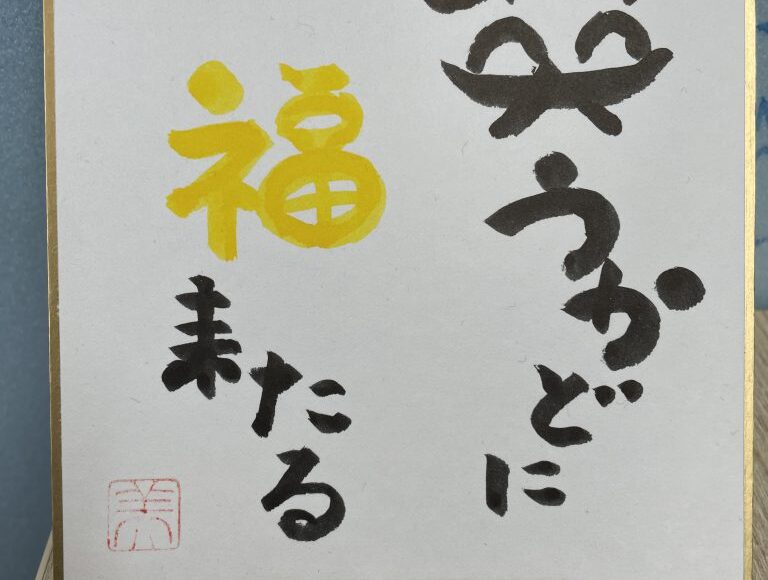 笑うかどに
福来たる